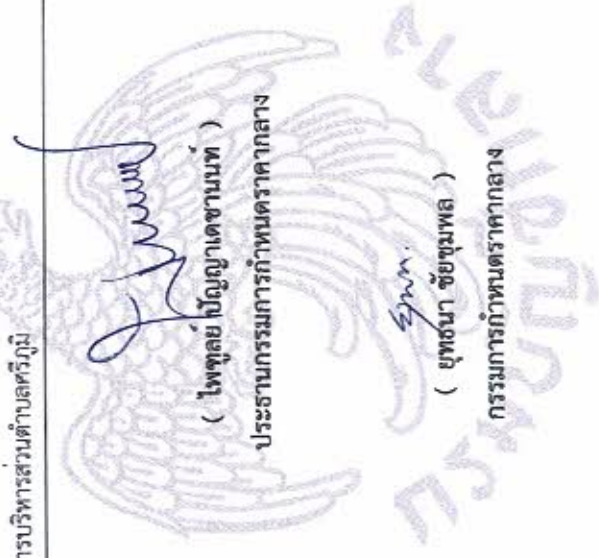 ารบริหารส่วนตำบลศรีภูมิ
( ไพฑูลย์ ปัญญาเดชานนท์ )
ประธานกรรมการกำหนดราคากลาง
( ยุทธนา ชัยชุมพล )
กรรมการกำหนดราคากลาง